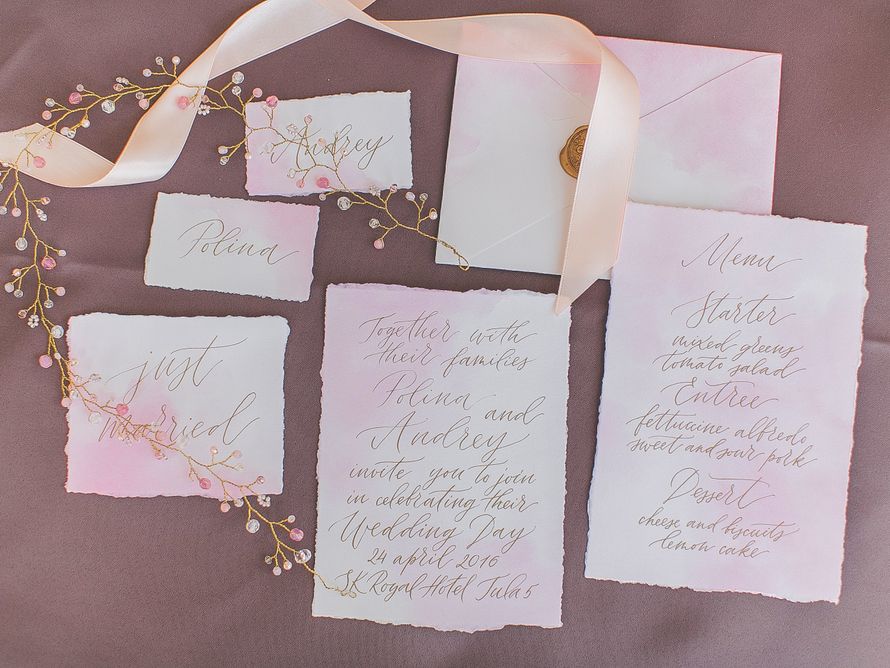 Andrey
Polina
just
married
Together with
their families
Polina and
Andrey
invite you to join
in celebrating their
Wedding Day
24 april 2016
SK Royal Hotel Tula 5
Menu
Starter
mixed greens
tomato salad
Entree
fettuccine alfredo
sweet and sour pork
Dessert
cheese and biscuits
lemon cake